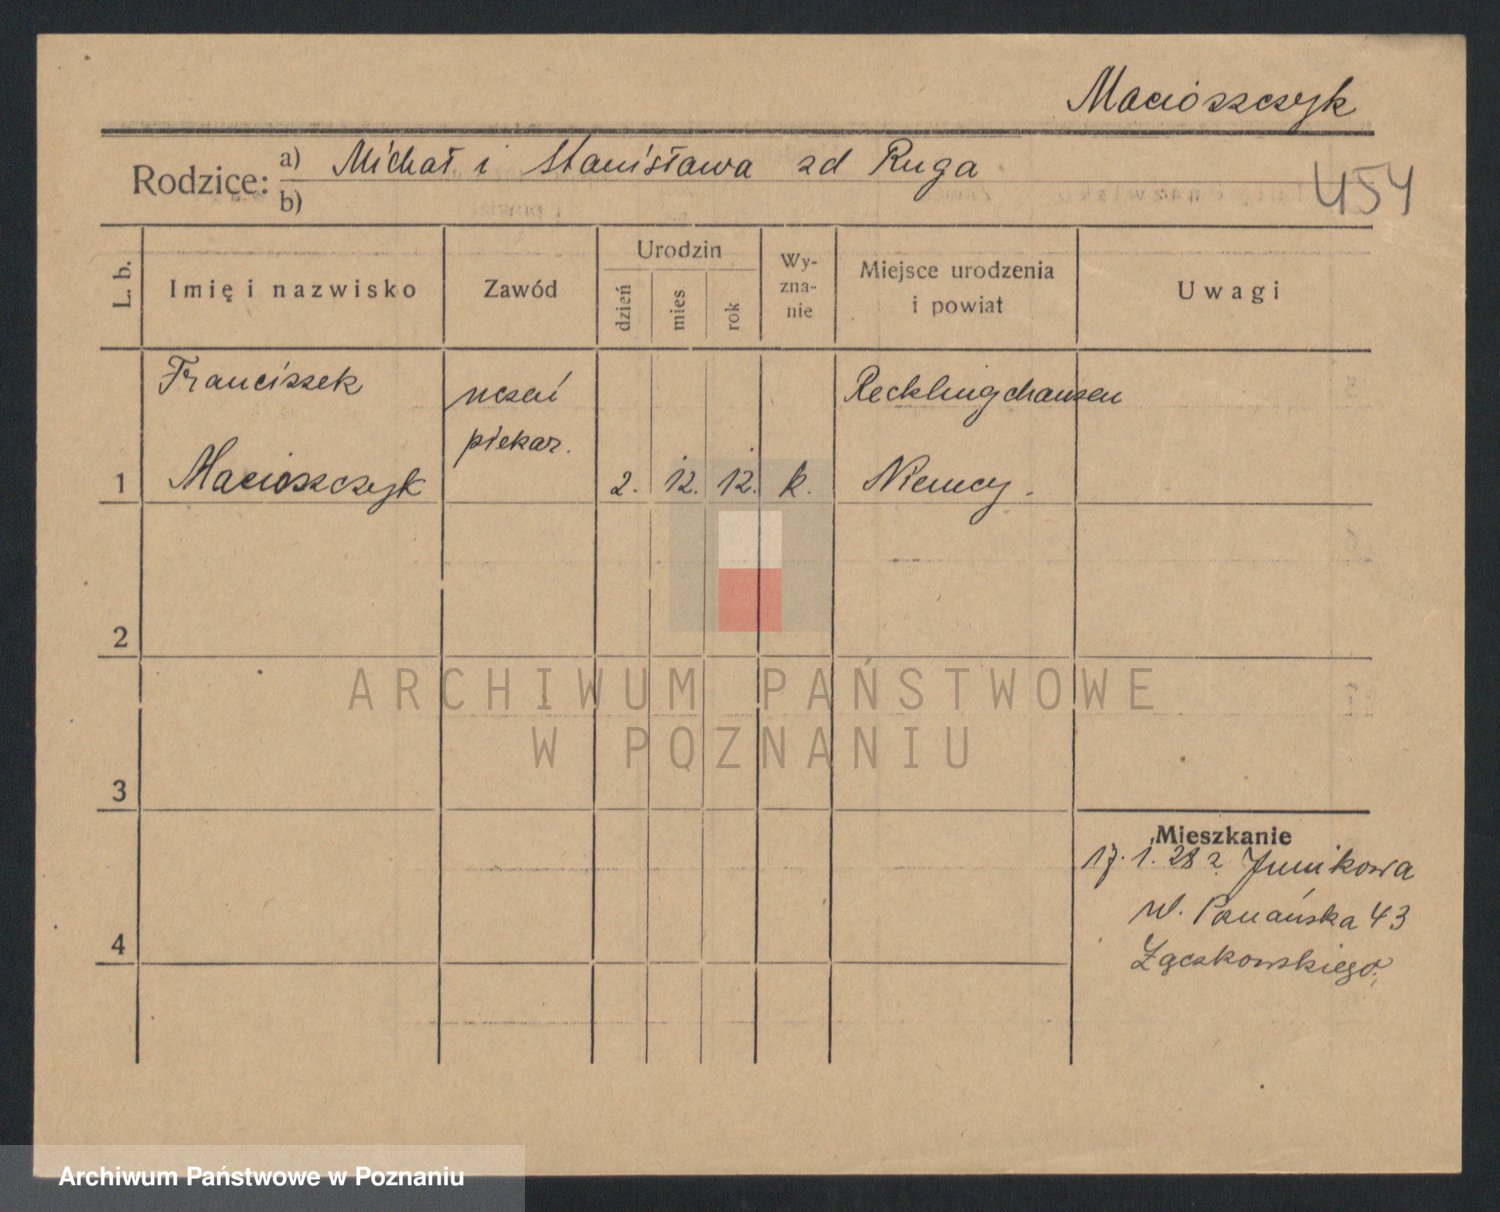 Macioszczyk
Rodzice: a) Michał i Stanisława zd Ruga
b)
454
L. b.
Imię i nazwisko
Zawód
Urodzin
dzień
mies
rok
Wy-
zna-
nie
Miejsce urodzenia
i powiat
Uwagi
Franciszek
uczeń
Recklingchausen
piekar.
1 Macioszczyk 2. 12. 12. k. Niemcy.
2
ARCHIWUM PAŃSTWOWE
W POZNANIU
3
Mieszkanie
17. 1. 28 z Junikowa
ul. Poznańska 43
4
Łączkowskiego.
Archiwum Państwowe w Poznaniu